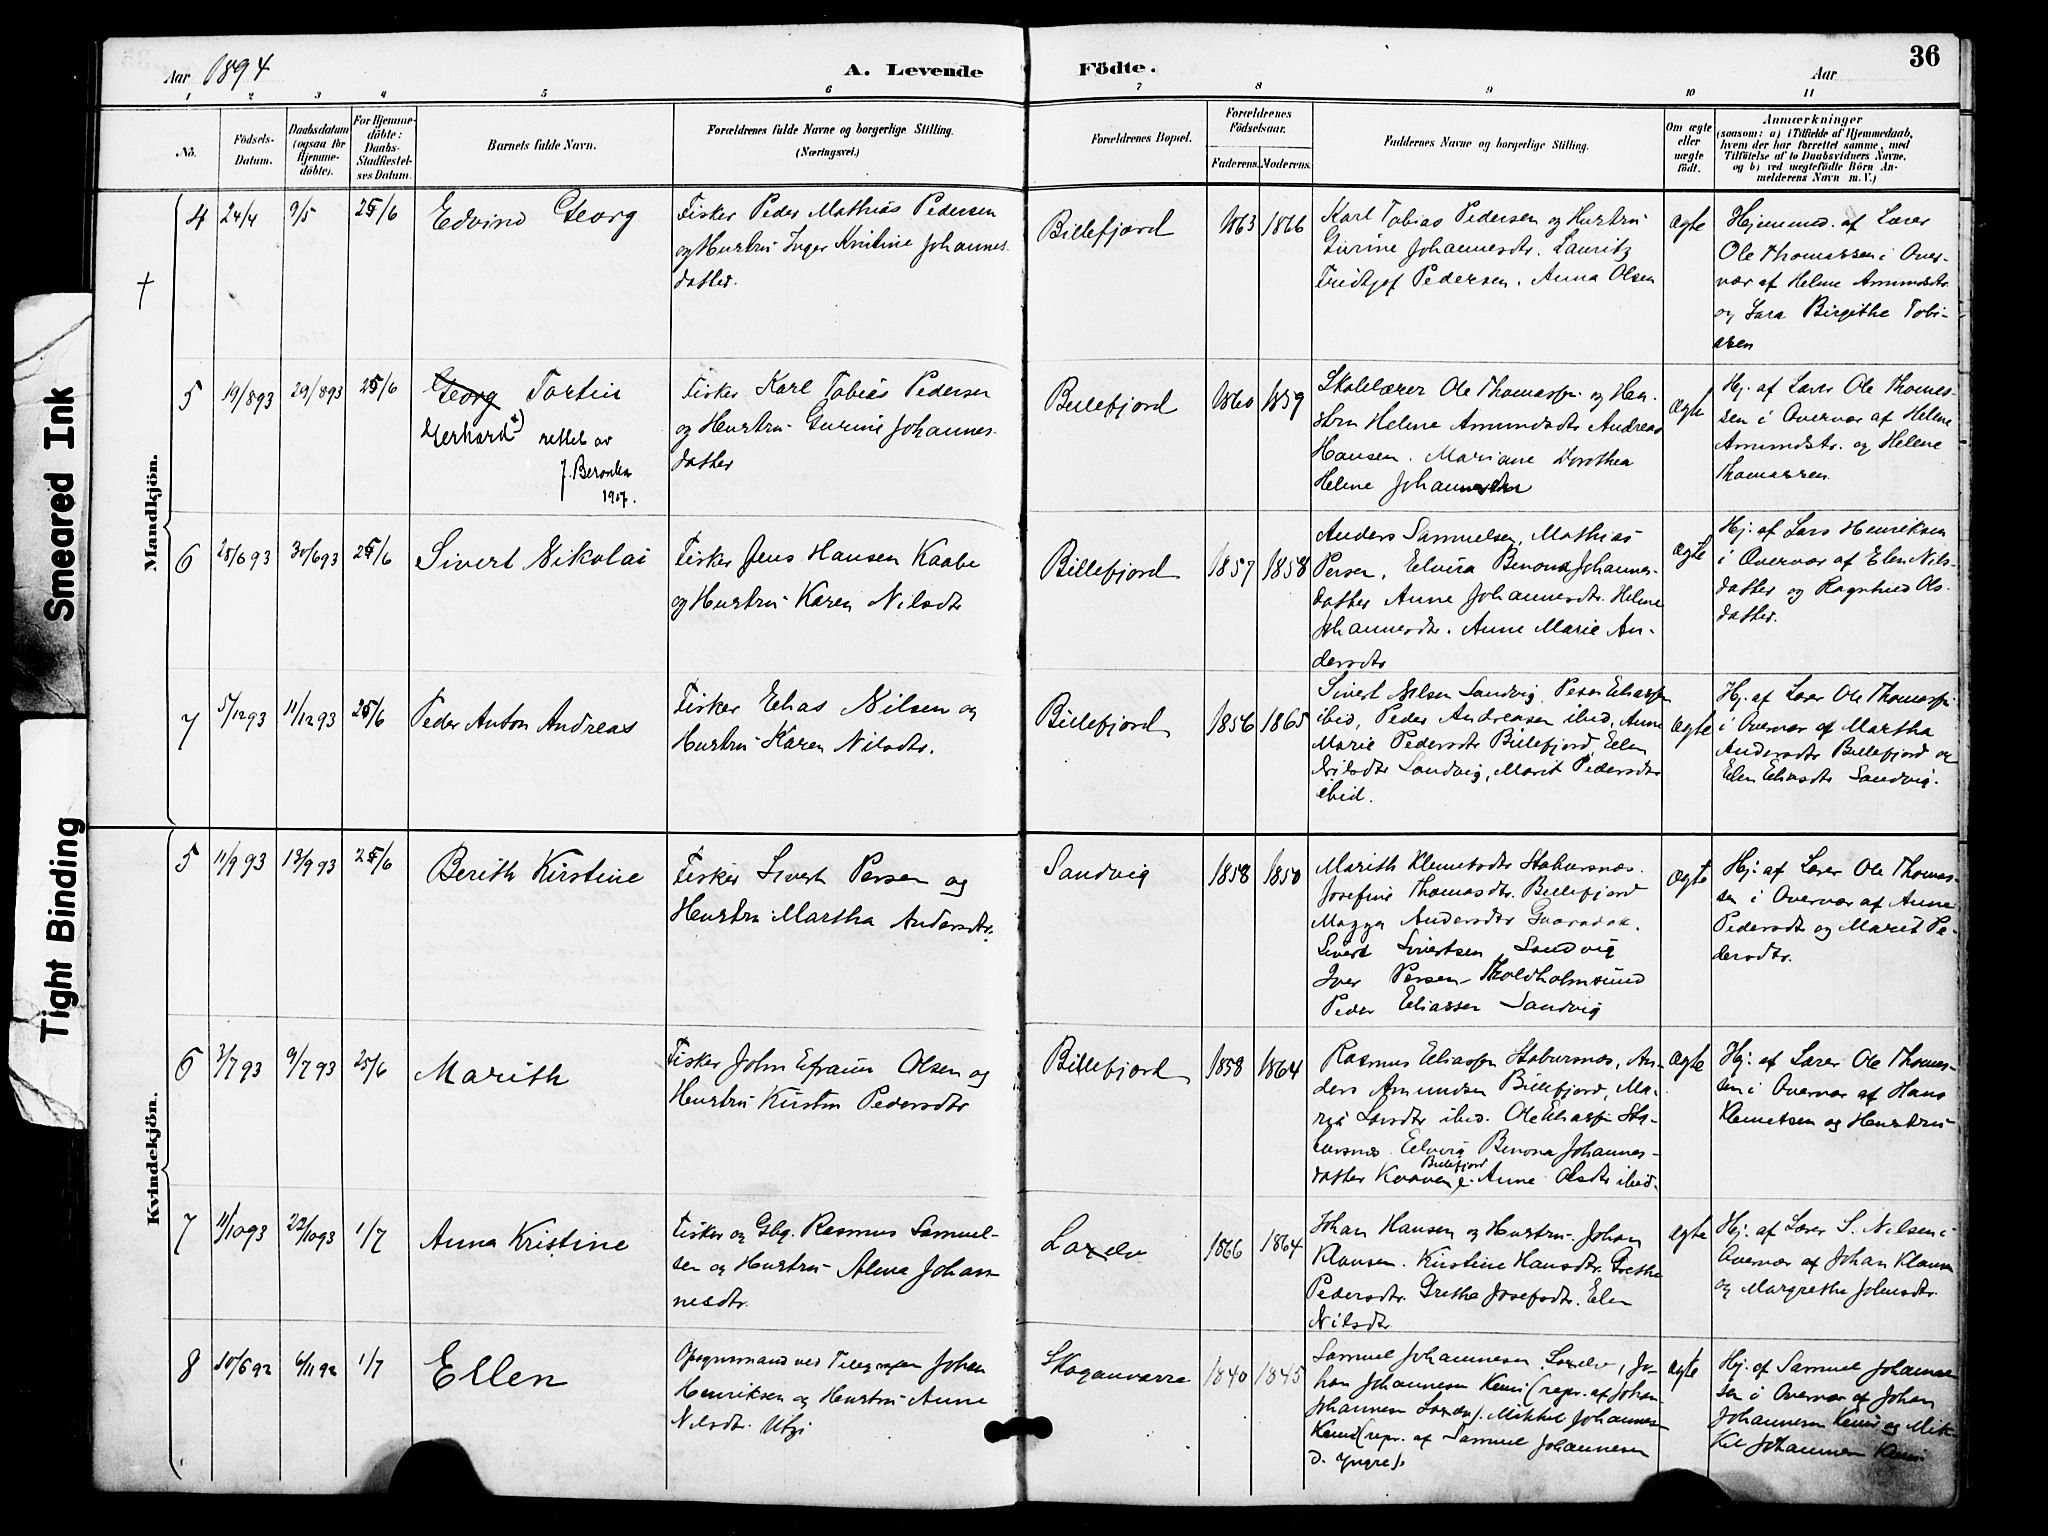 Smeared Ink
Tight Binding
Aar 1894
A. Levende Födte.
Aar
36
1 2 3 4 5 6 7 8 9 10 11
No.
Födsels-
Datum.
Daabsdatum
(ogsaa for
Hjemme-
döbte).
For Hjemme-
döbte:
Daabs-
Stadfæstel-
ses Datum.
Barnets fulde Navn.
Forældrenes fulde Navne og borgerlige Stilling.
(Næringsvei.)
Forældrenes Bopæl.
Forældrenes
Födselsaar.
Faderens. Moderens.
Faddernes Navne og borgerlige Stilling.
Om ægte
eller
uægte
födt.
Anmærkninger
(saasom: a) i Tilfælde af Hjemmedaab,
hvem der har forrettet samme, med
Tilföielse af to Daabsvidners Navne,
og b) ved uægtefödte Börn An-
melderens Navn m. V.)
Mandkjön.
†
4 24/4 9/5 25/6 Edvind Georg
Fisker Peder Mathias Pedersen
og Hustru Inger Kristine Johannes-
datter.
Billefjord 1863 1866
Karl Tobias Pedersen og Hustru
Gurine Johannesdtr. Lauritz
Fridtjof Pedersen. Anna Olsen
ægte
Hjemmed. af Lærer
Ole Thomassen i Over-
vær af Helene Amundsdtr
og Sara Birgithe Tobi-
asen
5 19/8 93 29/8 93 25/6 Georg Torfin
Gerhard *) rettet av
J. Beronka
1907.
Fisker Karl Tobias Pedersen
og Hustru Gurine Johannes-
datter
Billefjord 1860 1859
Skolelærer Ole Thomass. og Hu-
stru Helene Amundsdtr Andreas
Hansen. Mariane Dorothea
Helene Johannesdtr
ægte
Hj. af Lærer Ole Thomas-
sen i Overvær af Helene
Amundsdtr. og Helene
Thomassen.
6 28/6 93 30/6 93 25/6 Sivert Nikolai
Fisker Jens Hansen Kaabe
og Hustru Karen Nilsdtr
Billefjord 1857 1858
Anders Samuelsen, Mathias
Persen, Elvira Benona Johannes-
datter Anne Johannesdtr. Helene
Johannesdtr. Anne Marie An-
dersdtr
ægte
Hj. af Lars Henriksen
i Overvær af Elen Nils-
datter og Ragnhild Ols-
datter.
7 5/12 93 11/12 93 25/6 Peder Anton Andreas
Fisker Elias Nilsen og
Hustru Karen Nilsdtr.
Billefjord 1856 1865
Sivert Nilsen Sandvig, Peder Eliassen
ibid, Peder Andreasen ibid, Anne
Marie Pedersdtr Billefjord, Elen
Nilsdtr Sandvig, Marit Pedersdtr
ibid.
ægte
Hj. af Lærer Ole Thomass.
i Overvær af Martha
Andersdtr Billefjord og
Elen Eliasdtr Sandvig.
Kvindekjön.
5 11/9 93 13/9 93 25/6 Berith Kirstine
Fisker Sivert Persen og
Hustru Martha Andersdtr.
Sandvig 1858 1850
Marith Klemetsdtr Stabursnæs.
Josefine Thomasdtr. Billefjord
Magga Andersdtr
Sivert Sivertsen Sandvig
Iver Persen Kjoldholmsund
Peder Eliassen Sandvig
ægte
Hj. af Lærer Ole Thomas-
sen i Overvær af Anne
Pedersdtr og Marit Pe-
dersdtr.
6 3/7 93 9/7 93 25/6 Marith
Fisker John Efraim Olsen og
Hustru Kirsten Pedersdtr
Billefjord 1858 1864
Rasmus Eliassen Stabursnæs, An-
ders Amundsen Billefjord, Ma-
ria Larsdtr ibid. Ole Eliassen Sta-
bursnæs. Elvira Benona Johannes-
datter Billefjord. Anne Olsdtr ibid.
ægte
Hj. af Lærer Ole Thomas-
sen i Overvær af Hans
Klemetsen og Hustru
7 11/10 93 22/10 93 1/7 Anna Kristine
Fisker og Gbg. Rasmus Samuel-
sen og Hustru Alma Johan-
nesdtr.
Laxelv 1866 1864
Johan Hansen og Hustru. Johan
Klausen. Kirstine Hansdtr. Grethe
Pedersdtr. Grethe Josefsdtr. Elen
Nilsdtr
ægte
Hj. af Lærer S. Nilsen i
Overvær af Johan Klausen
og Margrethe Johnsdtr.
8 10/6 92 6/11 92 1/7 Ellen
Opsynsmand ved Telegrafen Johan
Henriksen og Hustru Anne
Nilsdtr. Utzi
Skoganvarre 1840 1845
Samuel Johannesen Laxelv, Jo-
han Johannesen Kemi (repr. af Johan
Johannesen Laxelv). Mikkel Johannesen
Kemi (repr. af Samuel Johannesen
d. yngre).
ægte
Hj. af Samuel Johanne-
sen i Overvær af Johan
Johannesen Kemi og Mik-
kel Johannesen Kemi